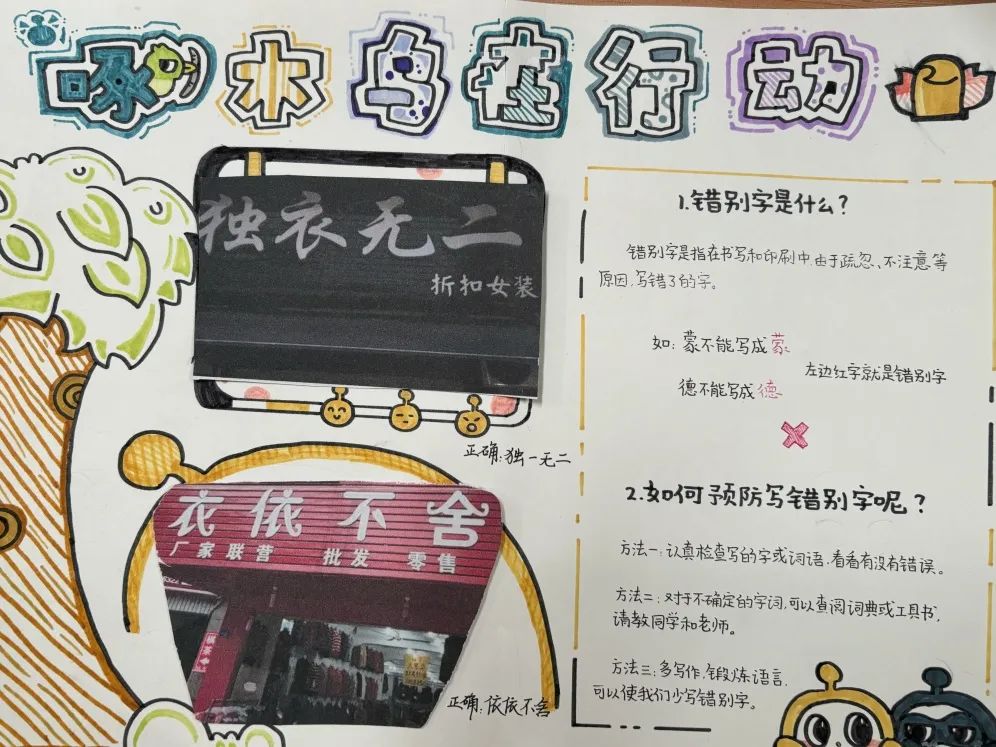 啄木鸟在行动
独衣无二
折扣女装
正确:独一无二
衣依不舍
厂家联营 批发 零售
正确:依依不舍
1.错别字是什么?
错别字是指在书写和印刷中,由于疏忽、不注意等
原因,写错了的字。
如:蒙不能写成
左边红字就是错别字
德不能写成
2.如何预防写错别字呢?
方法一:认真检查写的字或词语,看看有没有错误。
方法二:对于不确定的字词,可以查阅词典或工具书,
请教同学和老师。
方法三:多写作,锻炼语言,
可以使我们少写错别字。